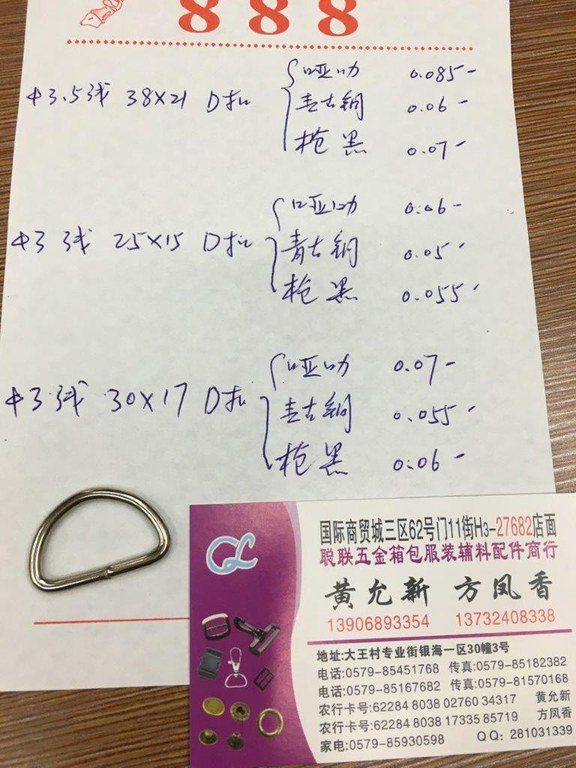 888
φ3.5线 38×21 D扣
哑叻 0.085-
青古铜 0.06-
枪黑 0.07-
φ3线 25×15 D扣
哑叻 0.06-
青古铜 0.05-
枪黑 0.055-
φ3线 30×17 D扣
哑叻 0.07-
青古铜 0.055-
枪黑 0.06-
国际商贸城三区62号门11街H3-27682店面
聪联五金箱包服装辅料配件商行
黄允新 方凤香
13906893354 13732408338
地址:大王村专业街银海一区30幢3号
电话:0579-85451768 传真:0579-85182382
电话:0579-85167682 传真:0579-81570168
农行卡号:62284 8038 02760 34317 黄允新
农行卡号:62284 8038 17335 85719 方凤香
家电:0579-85930598 QQ: 281031339